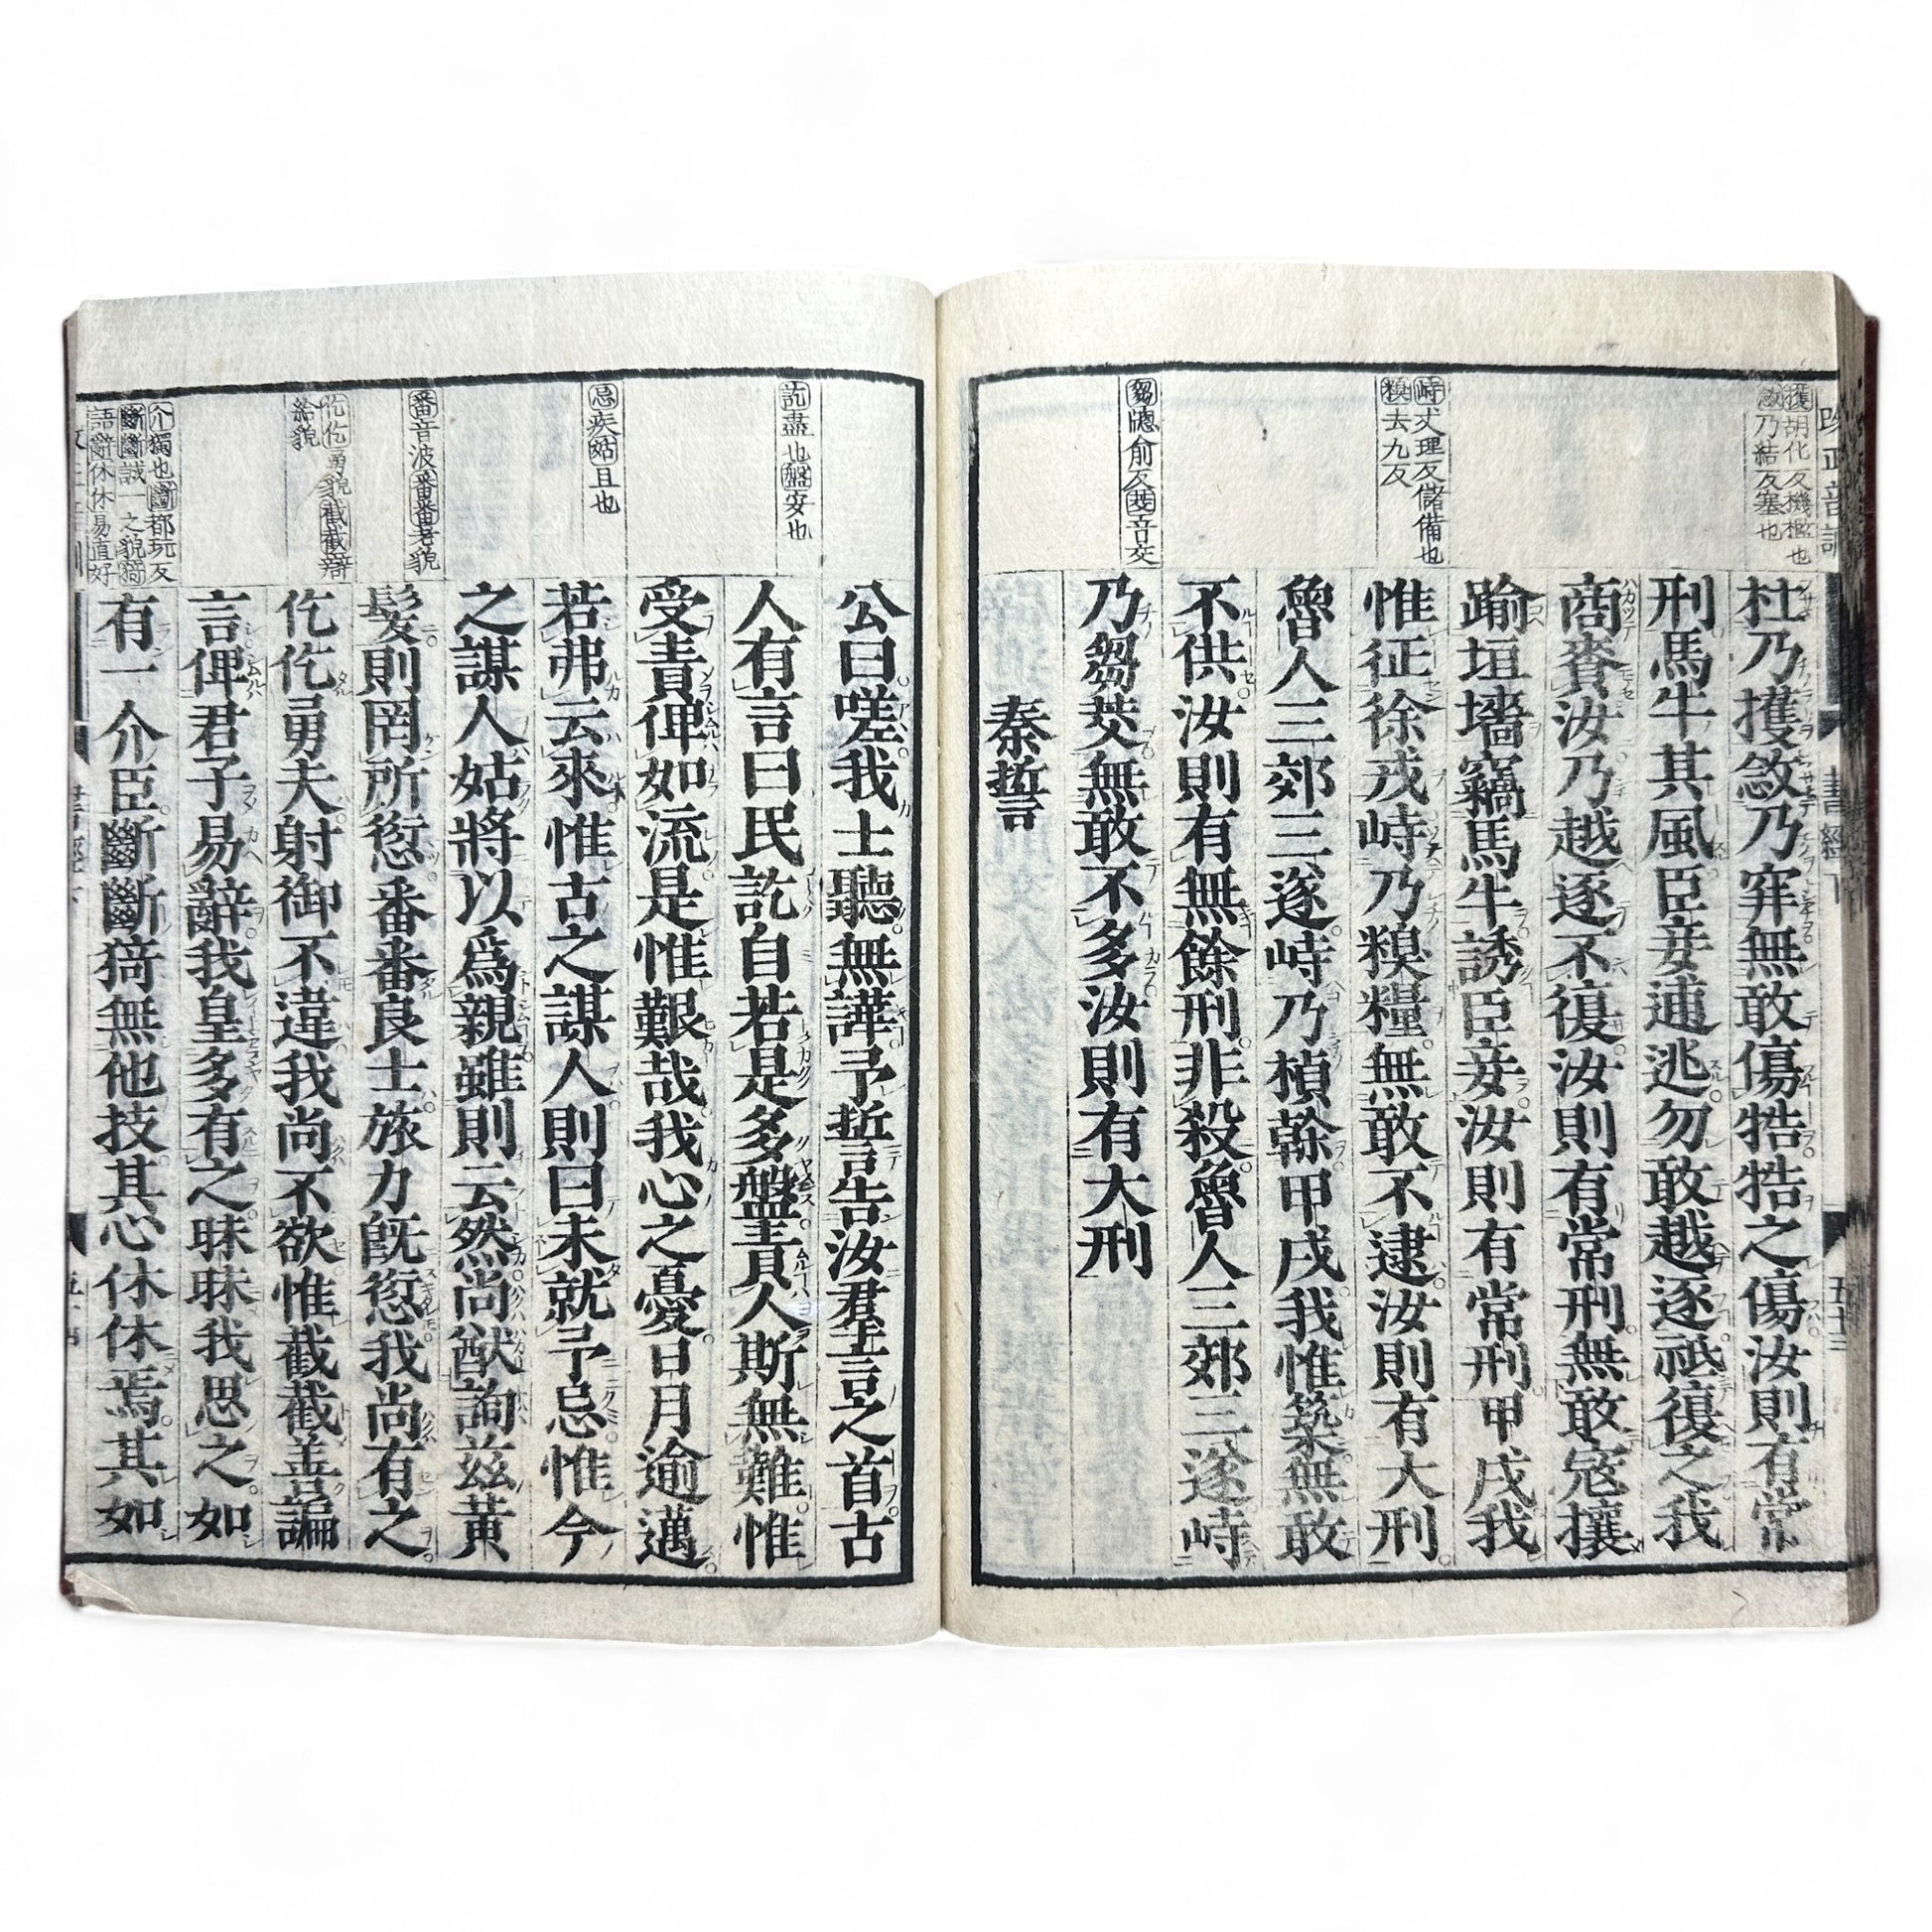 獲胡化反機檻也
敜乃結反塞也
峙丈理反儲備也
糗去九反
芻牕俞反茭音交
杜乃擭敜乃穽無敢傷牿牿之傷汝則有常
刑馬牛其風臣妾逋逃勿敢越逐祗復之我
商賚汝乃越逐不復汝則有常刑無敢寇攘
踰垣墻竊馬牛誘臣妾汝則有常刑甲戌我
惟征徐戎峙乃糗糧無敢不逮汝則有大刑
魯人三郊三遂峙乃楨榦甲戌我惟築無敢
不供汝則有無餘刑非殺魯人三郊三遂峙
乃芻茭無敢不多汝則有大刑
秦誓
書經下
五十三
訖盡也盤安也
忌疾姑且也
番音波番番老貌
仡仡勇貌截截辯
給貌
介獨也斷都玩反
斷斷誠一之貌猗
語辭休休易直好
公曰嗟我士聽無譁予誓告汝羣言之首古
人有言曰民訖自若是多盤責人斯無難惟
受責俾如流是惟艱哉我心之憂日月逾邁
若弗云來惟古之謀人則曰未就予忌惟今
之謀人姑將以爲親雖則云然尚猷詢茲黃
髮則罔所愆番番良士旅力旣愆我尚有之
仡仡勇夫射御不違我尚不欲惟截截善諞
言俾君子易辭我皇多有之昧昧我思之如
有一介臣斷斷猗無他技其心休休焉其如